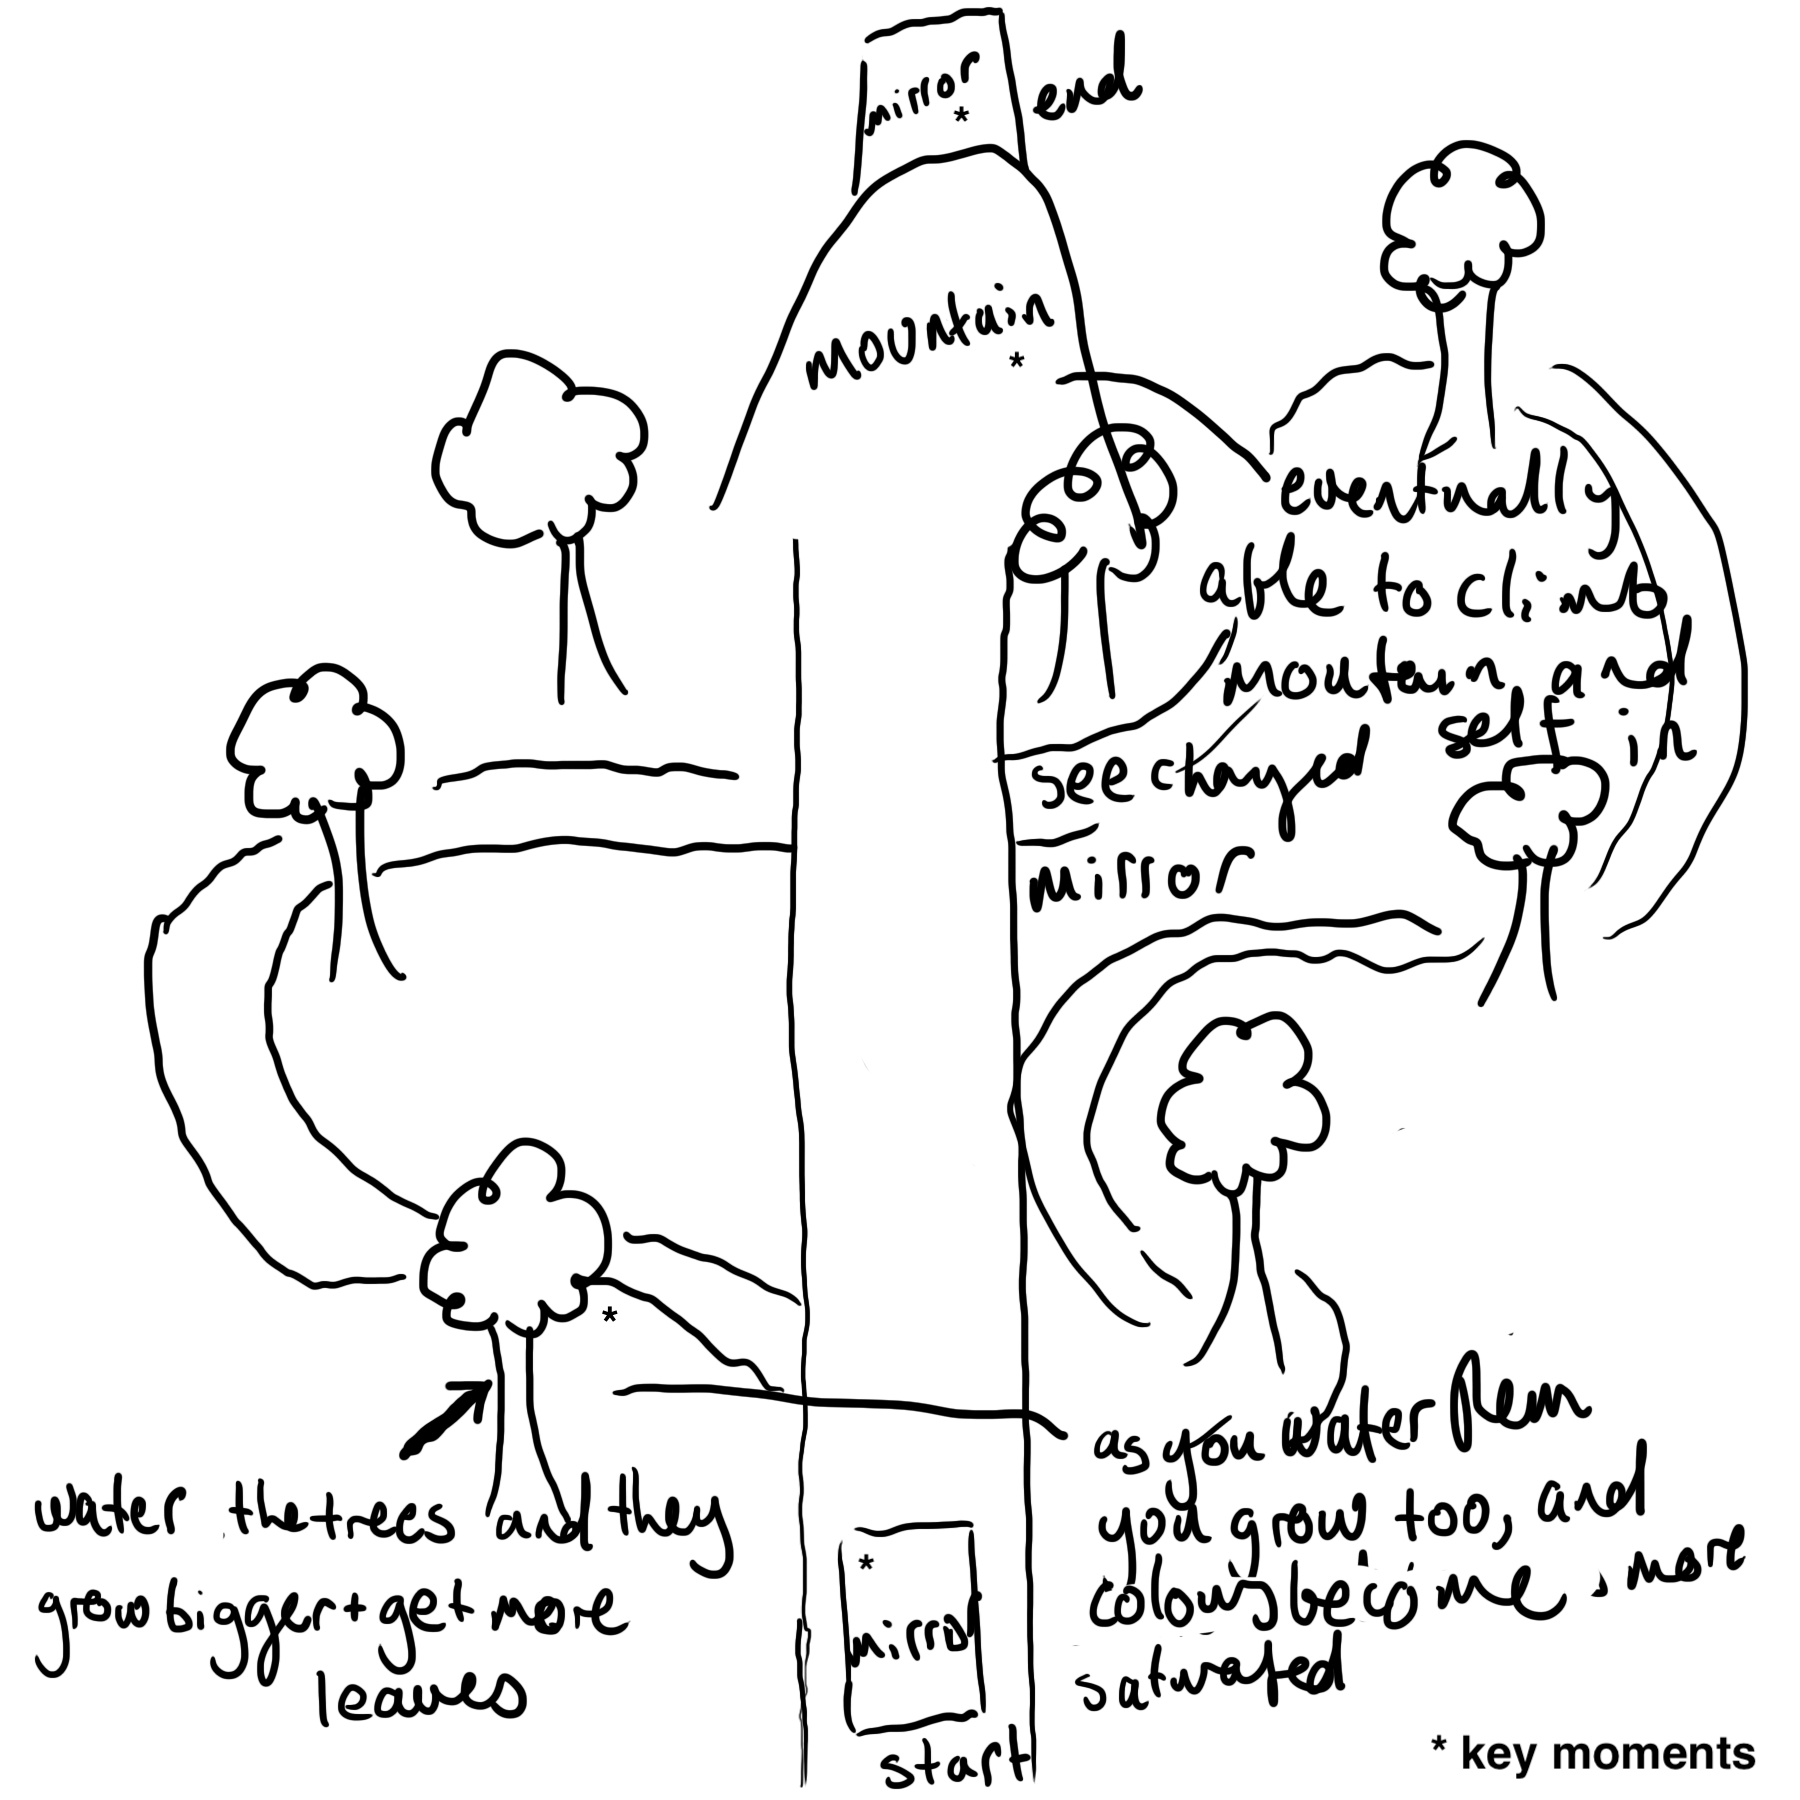 mirror *
end
mountain *
eventually
able to climb
moutain and
see changed self in
mirror
*
water the trees and they
grow bigger + get more
leaves
as you water them
you grow too, and
colours become more
saturated
*
mirror
start
* key moments